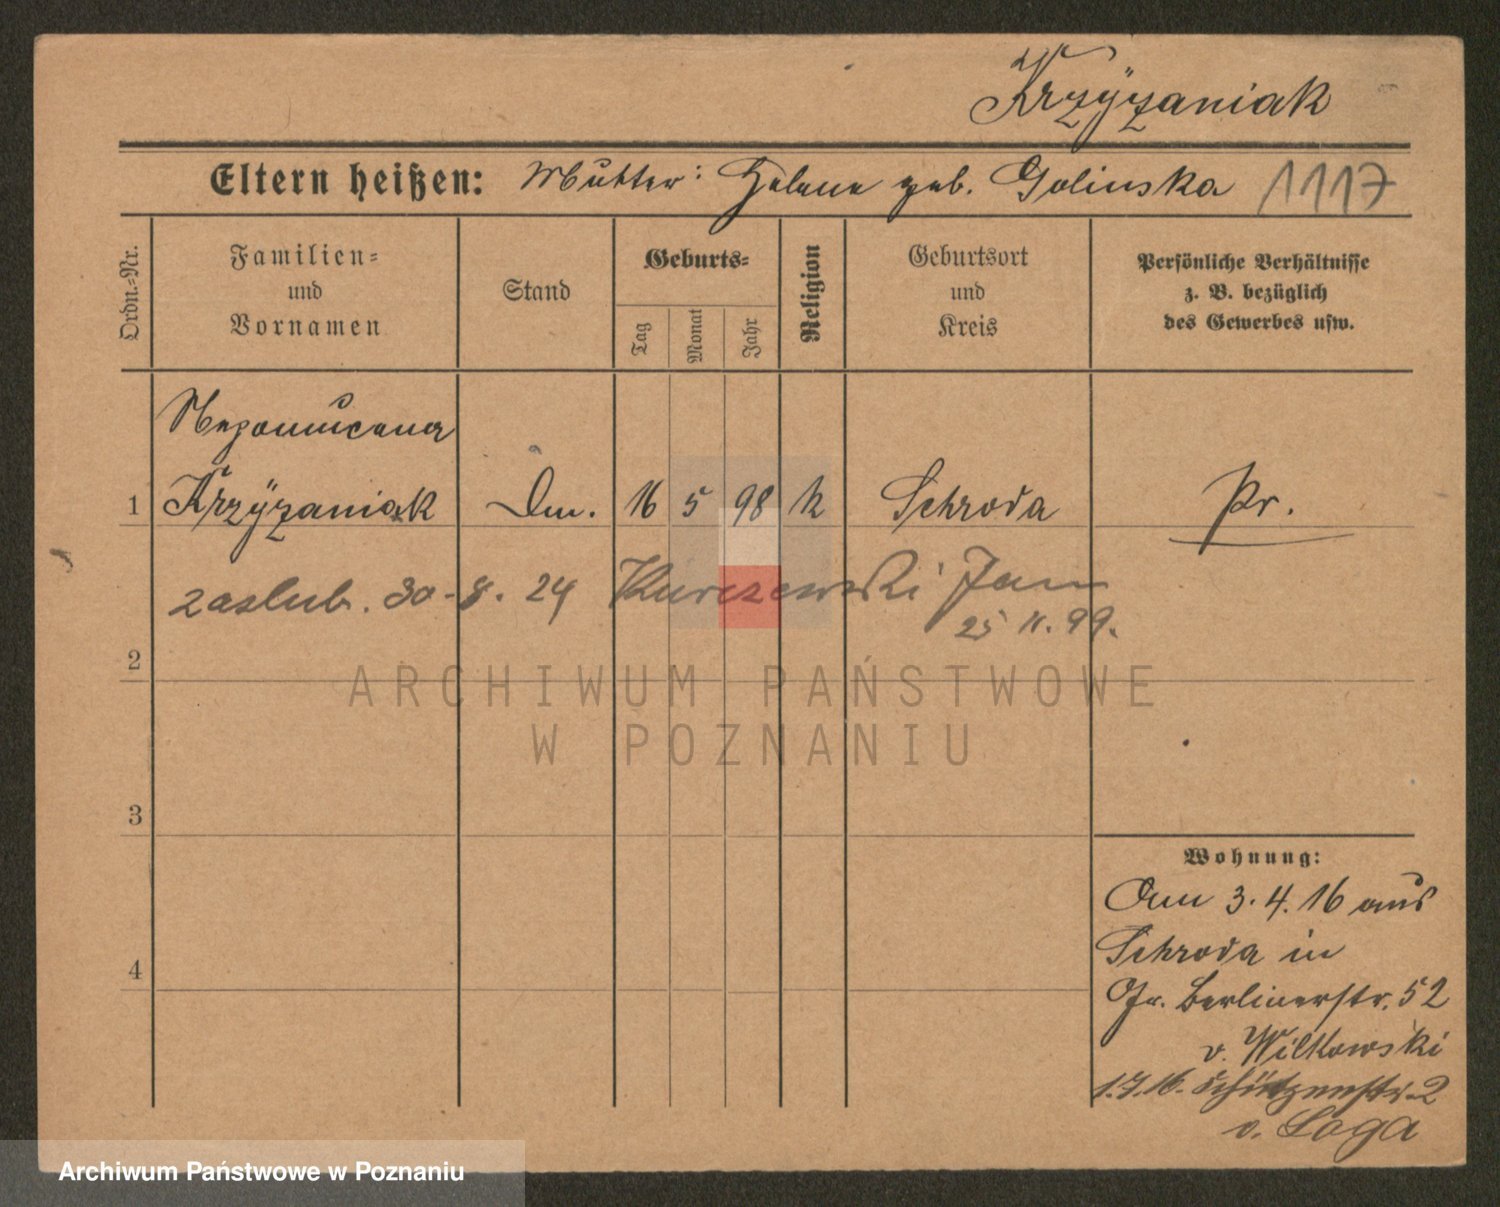 Krzyżaniak
Eltern heißen: Mutter: Helene geb. Golinska 1117
Ordn.-Nr.
Familien- und Vornamen
Stand
Geburts-
Tag
Monat
Jahr
Religion
Geburtsort und Kreis
Persönliche Verhältnisse z. B. bezüglich des Gewerbes usw.
Nepomucena
1 Krzyżaniak Dm. 16 5 98 k Schroda Pr.
zaslub. 30-8. 24 Kurczewski Jan
25 11. 99.
2
ARCHIWUM PAŃSTWOWE
W POZNANIU
3
4
Wohnung:
Am 3.4.16 aus
Schroda in
Gr. Berlinerstr. 52
v. Wilkowski
1.7.16. Schützenstr. 2
v. Loga
Archiwum Państwowe w Poznaniu